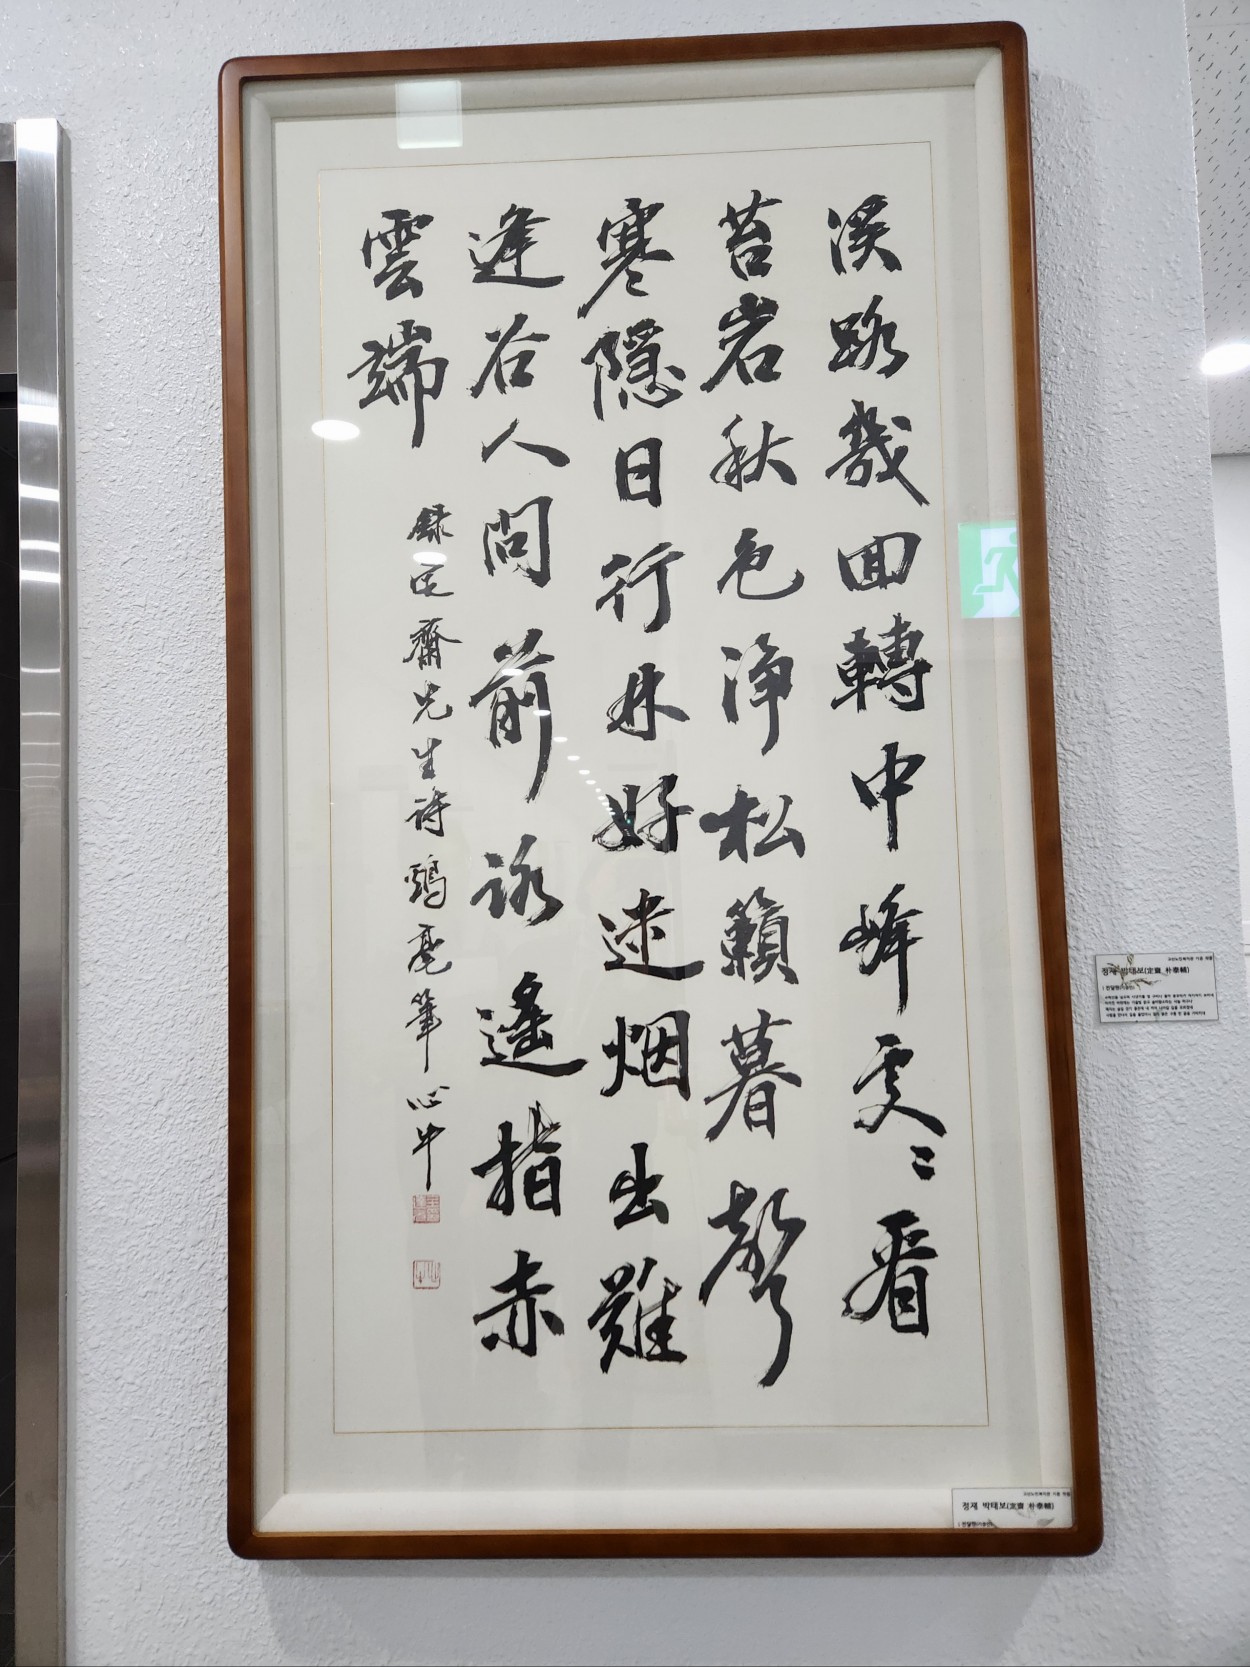 溪路幾回轉中峰處〻看
苔岩秋色淨松籟暮聲
寒隱日行林好迷烟出難
逢谷人問前詠遙指赤
雲端
錄定齋先生詩 鵝毫筆 心牛
정재 박태보(定齋 朴泰輔)
정재 박태보(定齋 朴泰輔)